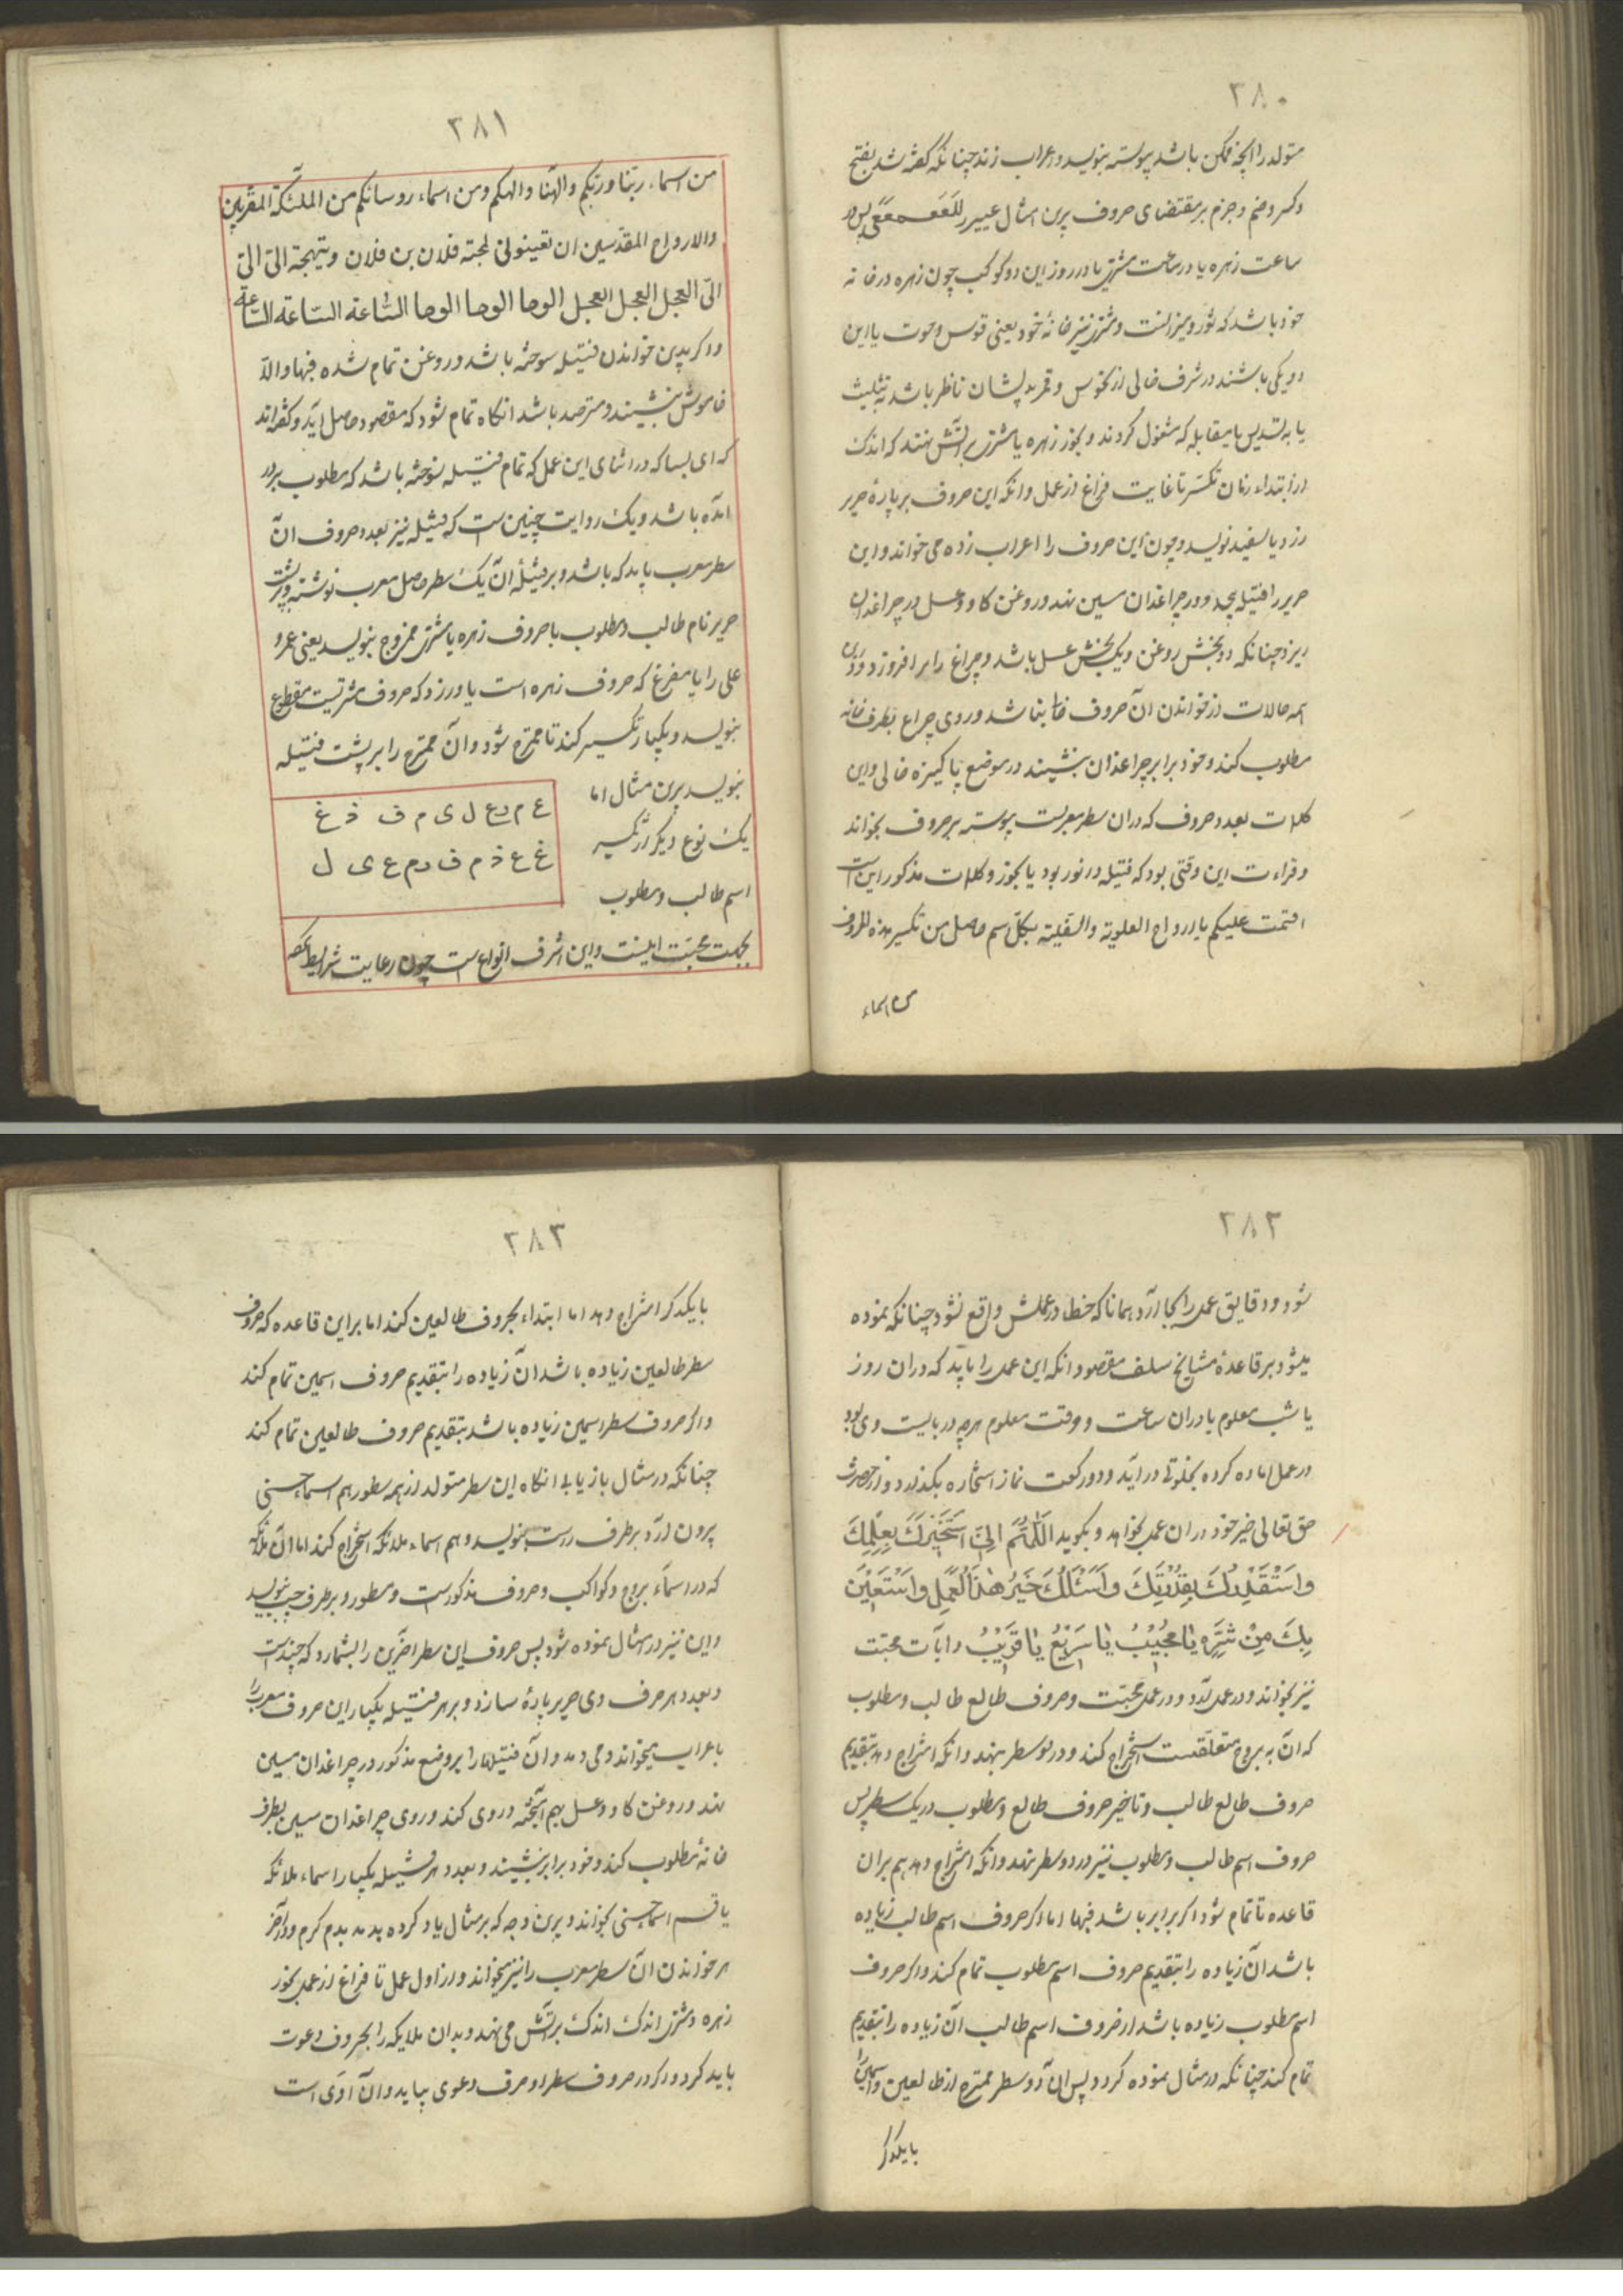 ۲۸۰
متولد را آنچه ممکن باشد پیوسته بنویسد و اعراب زند چنانکه گفته شد بفتح
و کسر و ضم و جزم بر مقتضای حروف برین مثال
ساعت زهره یا در ساعت مشتری یا در روز این دو کوکب چون زهره در خانه
خود باشد که ثور و میزانست و مشتری نیز خانهٔ خود یعنی قوس و حوت یا این
دو یکی باشند در شرف خالی از نحوس و قمر بدیشان ناظر باشد به تثلیث
یا به تسدیس یا بمقابله که مشغول گردند و بخور زهره یا مشتری بر آتش نهند که اندک
در ابتداء زمان تکسیر تا غایت فراغ از عمل و آنکه این حروف بر پارهٔ حریر
زرد یا سفید نویسد و چون این حروف را اعراب زده می خواند و این
حریر را فتیله پیچد و در چراغدان مسین نهد و روغن کاو و عسل در چراغدان
ریزد چنانکه دو بخش روغن و یک بخش عسل باشد و چراغ را برافروزد و در
همه حالات از خواندن آن حروف غائب نباشد و روی چراغ بطرف خانه
مطلوب کند و خود برابر چراغدان بنشیند در موضع پاکیزه خالی و این
کلمات بعدد حروف که در آن سطر معربست پیوسته بر حروف بخواند
و قراءت این وقتی بود که فتیله در نور بود یا بخور و کلمات مذکور این است
اقسمت علیکم یا ارواح العلویة والسفلیة بکل اسم حاصل من تکسیر هذه الحروف
من اسماء
۲۸۱
من اسماء ربنا وربکم والهنا والهکم ومن اسماء روسائکم من الملئکة المقربین
والارواح المقدسین ان تعینونی لمحبته فلان بن فلان وتهیجته الیّ الیّ
الیّ العجل العجل العجل الوحا الوحا الوحا الساعة الساعة الساعة
و اگر بدین خواندن فتیله سوخته باشد و روغن تمام شده فبها والّا
خاموش بنشیند و مترصد باشد آنگاه تمام شود که مقصود حاصل آید و گفته‌اند
که ای بسا که در اثنای این عمل که تمام فتیله نسوخته باشد که مطلوب بر در
آمده باشد و یک روایت چنین است که فتیله نیز بعدد حروف آن
سطر معرب باید که باشد و بر فتیلهٔ آن یک سطر حاصل معرب نوشته و بر پشت
حریر نام طالب و مطلوب با حروف زهره یا مشتری ممزوج بنویسد یعنی عمرو
علی را با مفرغ که حروف زهره است یا ورزد که حروف مشتریست مقطع
بنویسد و یکبار تکسیر کند تا ممتزج شود و آن ممتزج را بر پشت فتیله
بنویسد برین مثال اما
یک نوع دیگر از تکسیر
اسم طالب و مطلوب
ع م و ع ل ی م ف ذ غ
غ ع ذ م ف و م ع ی ل
بجهت محبت اینست و این اشرف انواع است چون رعایت شرایط کرده
۲۸۲
شود و دقایق عمل را بجا آرد همانا که خطا در عملش واقع نشود چنانکه نموده
میشود بر قاعدهٔ مشایخ سلف مقصود آنکه این عمل را باید که در آن روز
یا شب معلوم یا در آن ساعت و وقت معلوم هرچه در بایست وی بود
در عمل آماده کرده بخلوتی درآید و دو رکعت نماز استخاره بگذارد و از حضرت
حق تعالی خیر خود در آن عمل بخواهد و بگوید اَللّٰهُمَّ اِنّی اَسْتَخیرُکَ بِعِلْمِکَ
وَاَسْتَقْدِرُکَ بِقُدْرَتِکَ وَاَسْئَلُکَ خَیْرَ هٰذَا الْعَمَلِ وَاَسْتَعینُ
بِکَ مِنْ شَرِّهِ یٰا مُجیبُ یٰا سَریعُ یٰا قَریبُ و آیات محبت
نیز بخواند و در عمل آرد و در عمل محبت و حروف طالع طالب و مطلوب
که آن به بروج متعلقست استخراج کند و در دو سطر بنهد و آنکه امتزاج دهد بتقدیم
حروف طالع طالب و تاخیر حروف طالع مطلوب در یک سطر پس
حروف اسم طالب و مطلوب نیز در دو سطر نهد و آنکه امتزاج دهد هم بر آن
قاعده تا تمام شود اگر برابر باشد فبها اما اگر حروف اسم طالب زیاده
باشد آن زیاده را بتقدیم حروف اسم مطلوب تمام کند و اگر حروف
اسم مطلوب زیاده باشد از حروف اسم طالب آن زیاده را بتقدیم
تمام کند چنانکه در مثال نموده گردد پس آن دو سطر ممتزج از طالعین و اسمین را
بایکدگر
۲۸۳
بایکدگر امتزاج دهد اما ابتداء بحروف طالعین کند اما بر این قاعده که حروف
سطر طالعین زیاده باشد آن زیاده را بتقدیم حروف اسمین تمام کند
و اگر حروف سطر اسمین زیاده باشد بتقدیم حروف طالعین تمام کند
چنانکه در مثال باز یابی آنگاه این سطر متولد از همه سطور هم اسماء حسنی
بیرون آرد بر طرف راست بنویسد و هم اسماء ملائکه استخراج کند اما آن ملائکه
که در اسماء بروج و کواکب و حروف مذکورست و مسطور و بر طرف چپ بنویسد
و این نیز در مثال نموده شود پس حروف این سطر آخرین را بشمارد که چندست
و بعدد هر حرف وی حریر پارهٔ سازد و بر هر فتیله یکبار این حروف معرب را
باعراب میخواند و می دمد و آن فتیلها را بر وضع مذکور در چراغدان مسین
نهد و روغن کاو و عسل بهم آمیخته در وی کند و روی چراغدان مسین بطرف
خانهٔ مطلوب کند و خود برابر بنشیند و بعدد هر فتیله یکبار اسماء ملائکه
با قسم اسماء حسنی بخواند و برین وجه که بر مثال یاد کرده بدمد بدم گرم و در آخر
هر خواندن آن سطر معرب را نیز میخواند و از اول عمل تا فراغ از عمل بخور
زهره و مشتری اندک اندک بر آتش می نهد و بدان ملایکه را بحروف دعوت
باید کرد و اگر در حروف سطر او حرف دعوی بیاید و آن اوی است